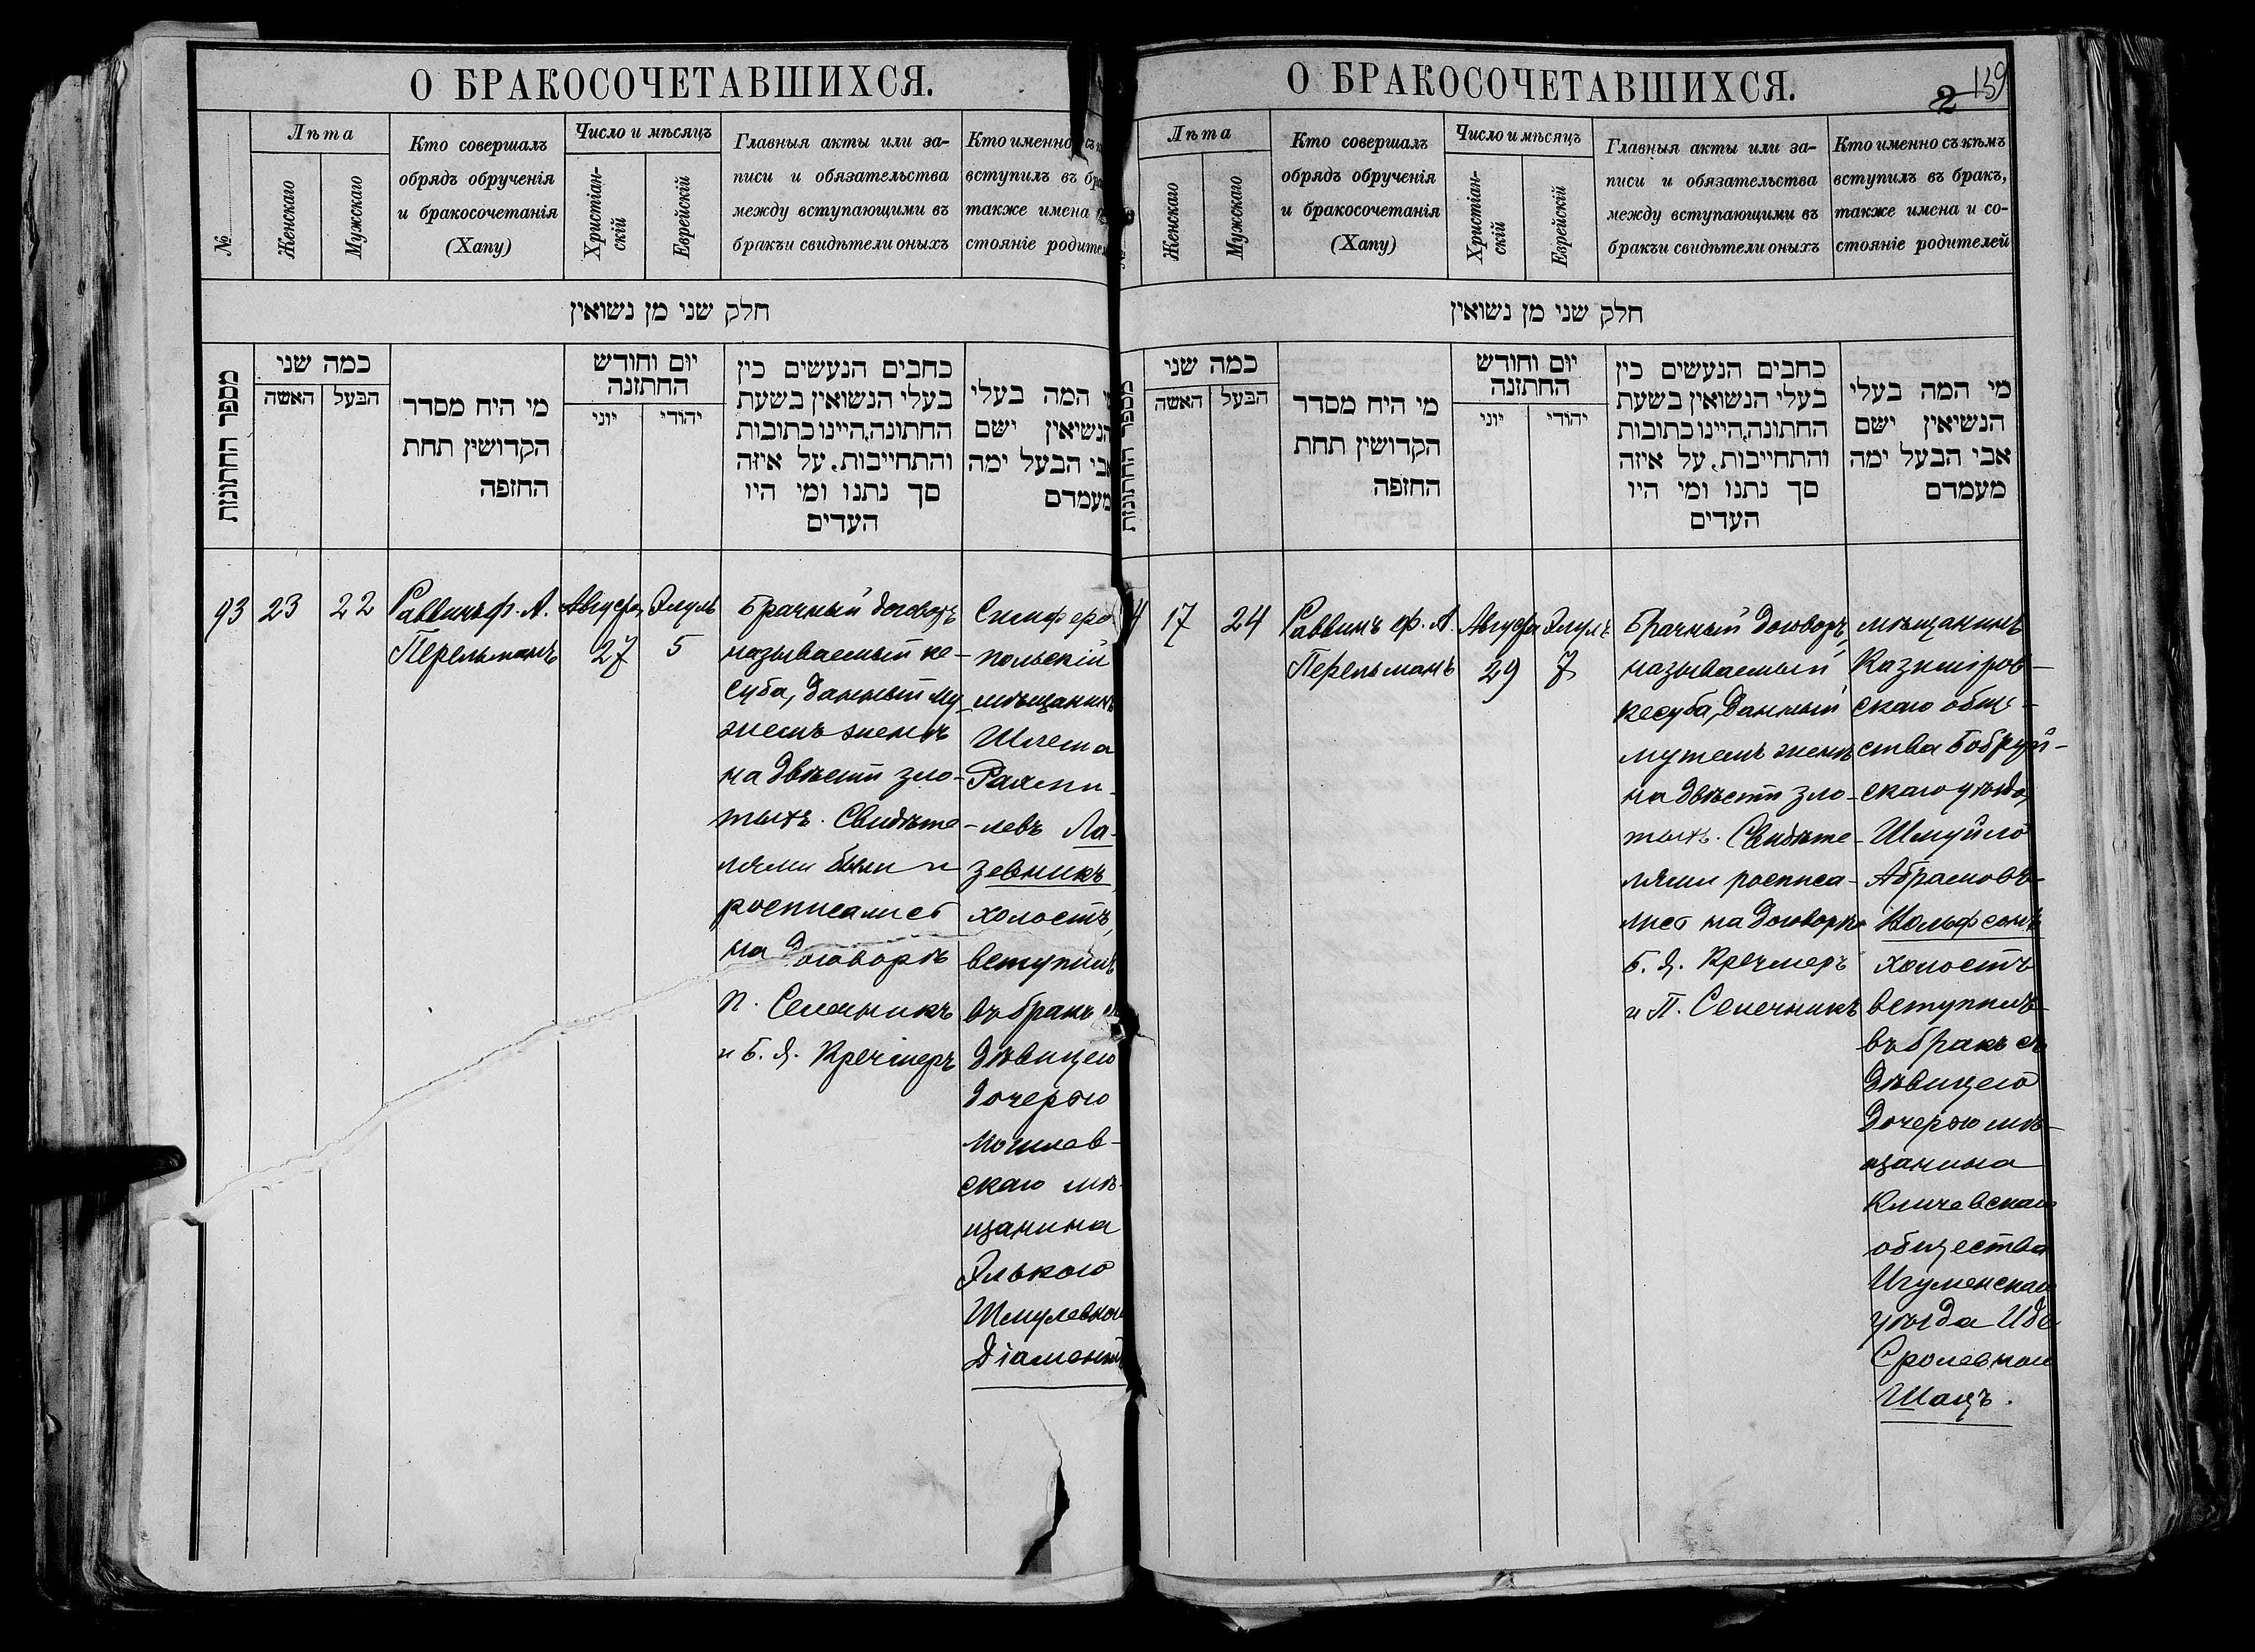 О БРАКОСОЧЕТАВШИХСЯ.
№
Лѣта
Женскаго
Мужскаго
Кто совершалъ
обрядъ обрученія
и бракосочетанія
(Хапу)
Число и мѣсяцъ
Христіан-
скій
Еврейскій
Главныя акты или за-
писи и обязательства
между вступающими въ
бракъи свидѣтели оныхъ
Кто именно
вступилъ въ
также имена
стояніе
חלק שני מן נשואין
מספר החתונות
כמה שני
האשה
הבעל
מי היח מסדר
הקדושין תחת
החופה
יום וחודש
החתונה
יוני
יהודי
כחבים הנעשים כין
בעלי הנשואין בשעת
החתונה,היינו כתובות
והתחייבות, על איזה
סך נתנו ומי היו
העדים
המה בעלי
הנשיאין ישם
אבי הבעל ימה
מעמדם
93
23
22
Раввинъ ф. А.
Перельманъ
Августа
27
Элуль
5
Брачный договоръ
называемый ке-
суба, данный му-
жемъ женѣ
на двѣсти зло-
тыхъ. Свидѣте-
лями были и
росписались
на договорѣ
П. Селечникъ
и Б. Я. Кречмеръ
Симферо
польскій
мѣщанинъ
Шлема
-левъ Ла-
зебникъ
холостъ,
вступилъ
въ бракъ
дѣвицею
дочерью
скаго мѣ-
щанина
Элькою
Шмулевною
О БРАКОСОЧЕТАВШИХСЯ.
2
159
Лѣта
Женскаго
Мужскаго
Кто совершалъ
обрядъ обрученія
и бракосочетанія
(Хапу)
Число и мѣсяцъ
Христіан-
скій
Еврейскій
Главныя акты или за-
писи и обязательства
между вступающими въ
бракъи свидѣтели оныхъ
Кто именно съ кѣмъ
вступилъ въ бракъ,
также имена и со-
стояніе родителей
חלק שני מן נשואין
כמה שני
האשה
הבעל
מי היח מסדר
הקדושין תחת
החופה
יום וחודש
החתונה
יוני
יהודי
כחבים הנעשים כין
בעלי הנשואין בשעת
החתונה,היינו כתובות
והתחייבות, על איזה
סך נתנו ומי היו
העדים
מי המה בעלי
הנשיאין ישם
אבי הבעל ימה
מעמדם
4
17
24
Раввинъ ф. А.
Перельманъ
Августа
29
Элуль
7
Брачный договоръ,
называемый
кесуба, данный
мужемъ женѣ
на двѣсти зло-
тыхъ. Свидѣте-
лями росписа-
лись на договорѣ
Б. Я. Кречмеръ
и П. Селечникъ
мѣщанинъ
Казиміров-
скаго обще-
ства Бобруй-
скаго уѣзда,
Шмуйло
Абрамовъ
Вольфсонъ
холостъ
вступилъ
въ бракъ съ
дѣвицею
дочерью мѣ-
щанина
Кличевскаго
общества
Игуменскаго
уѣзда
Сролевною
Шацъ.